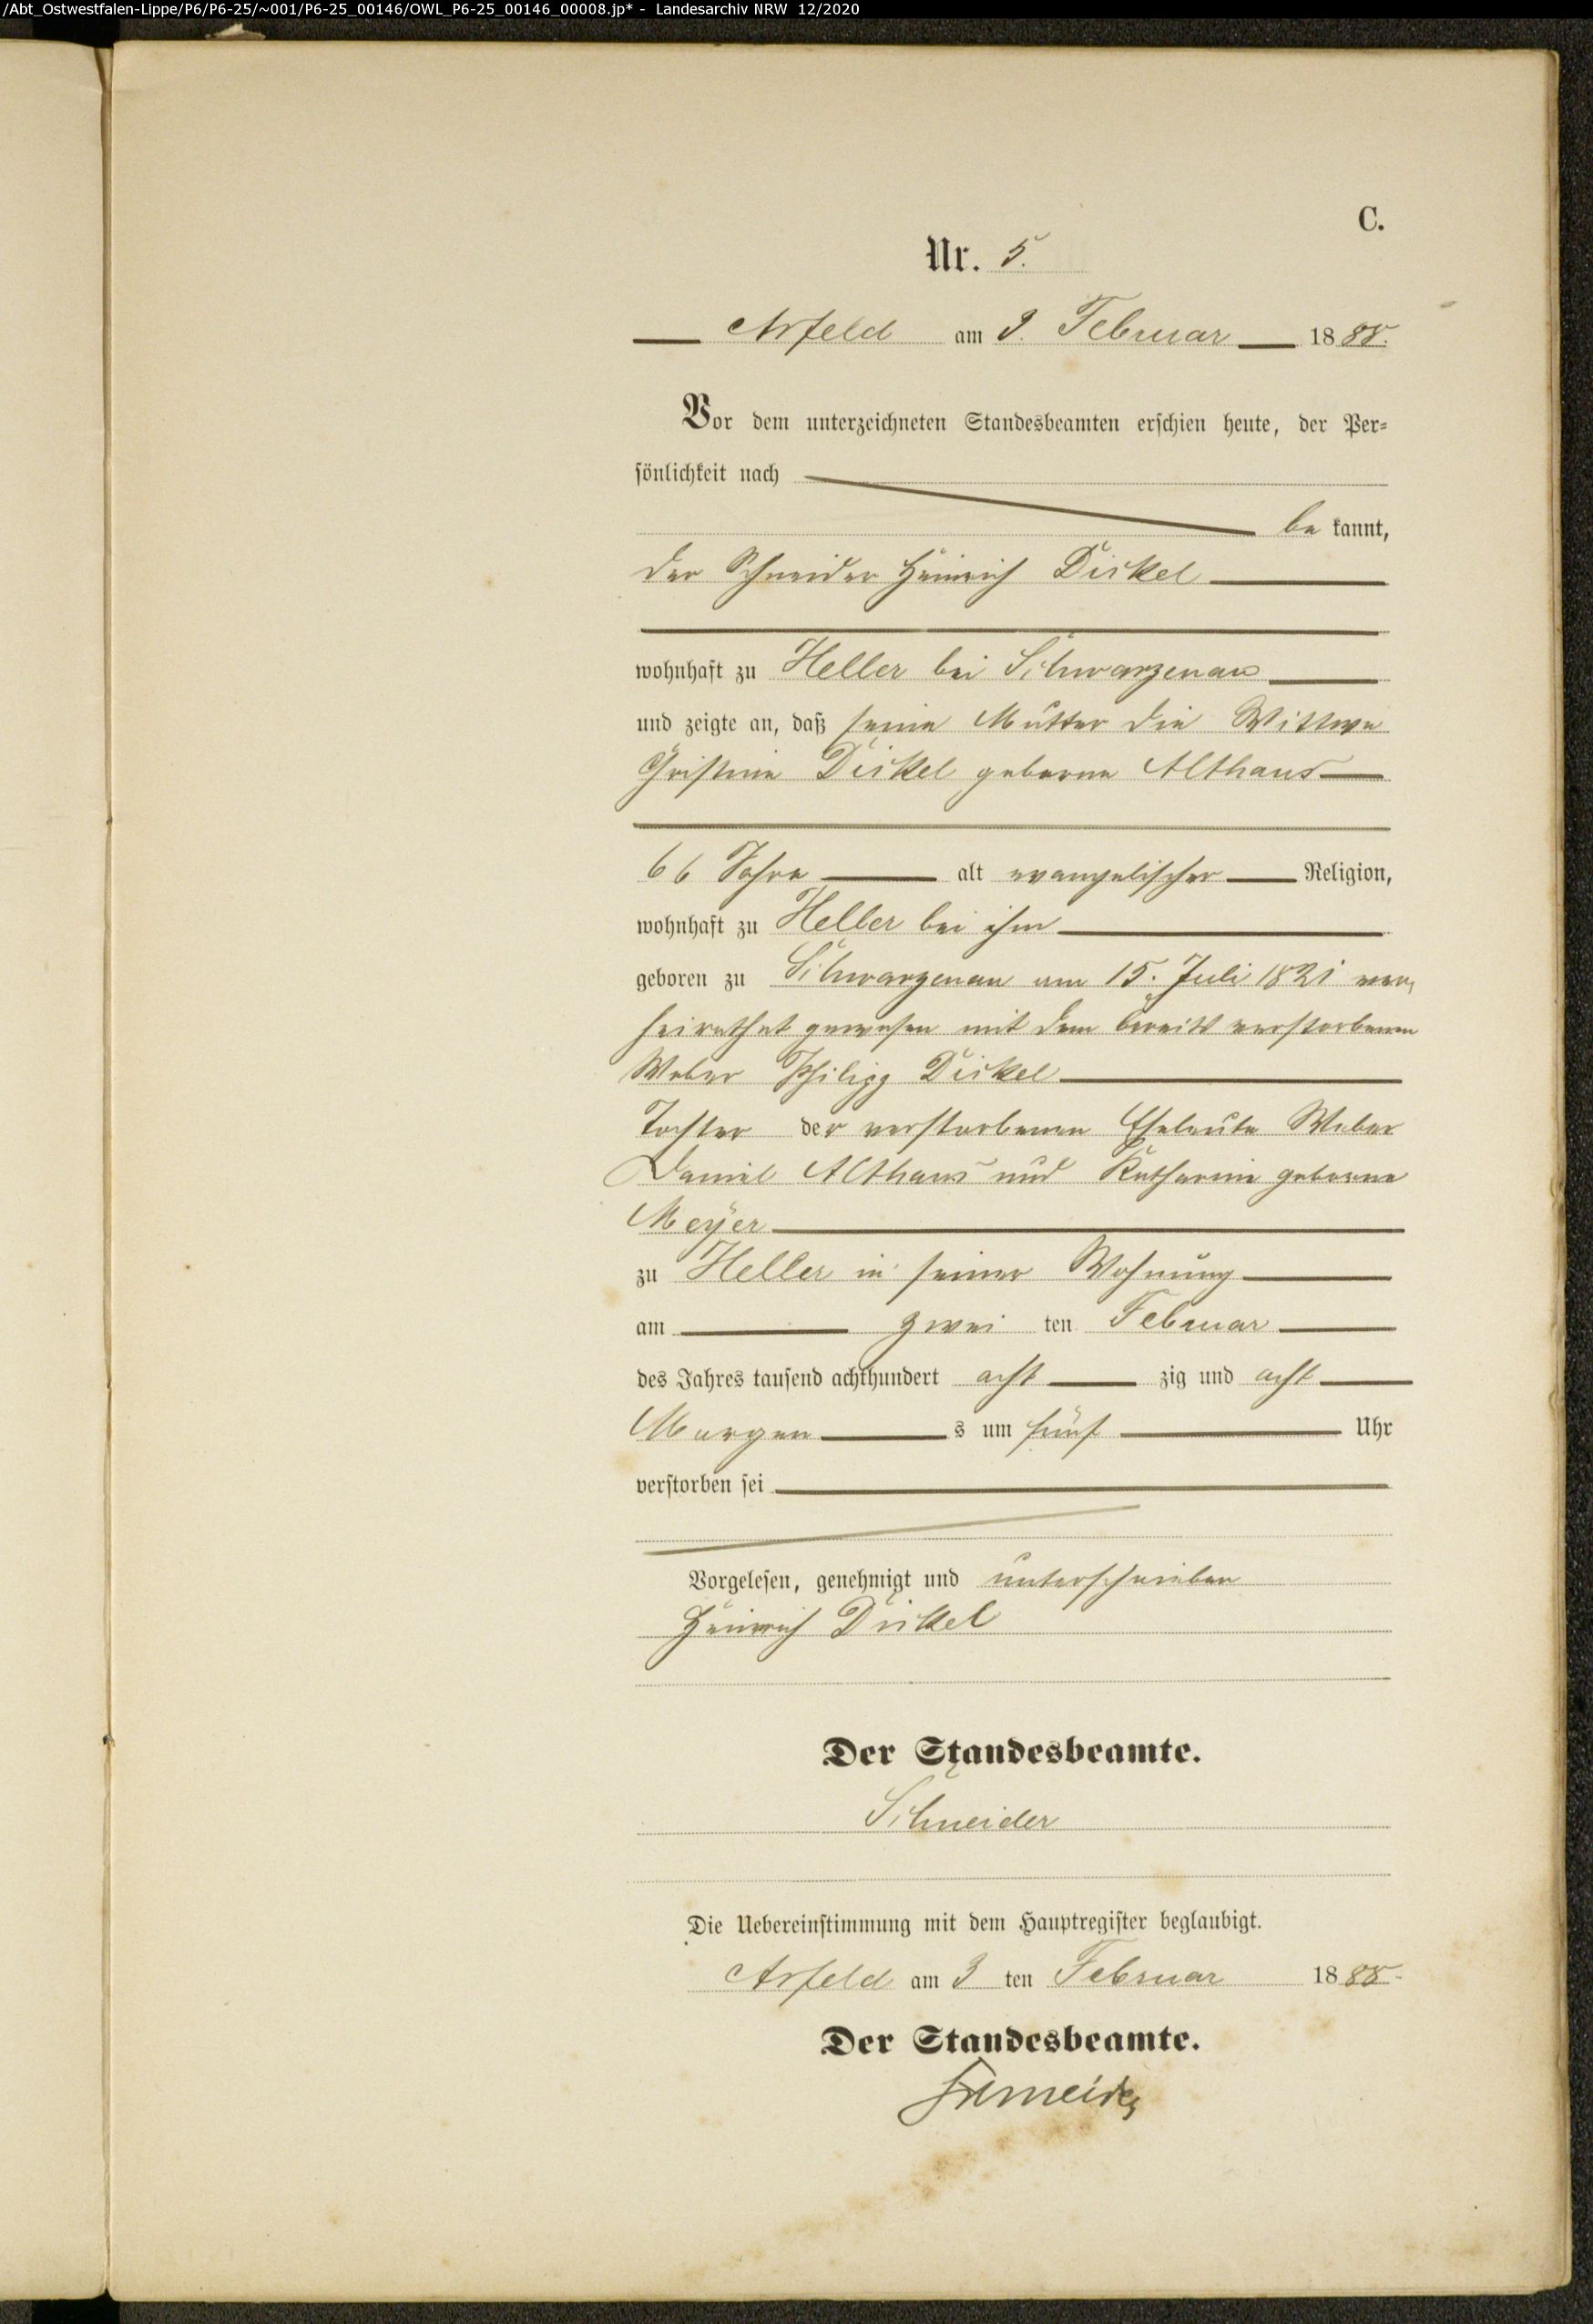 /Abt_Ostwestfalen-Lippe/P6/P6-25/~001/P6-25_00146/OWL_P6-25_00146_00008.jp* - Landesarchiv NRW 12/2020
C.
Nr. 5.
Arfeld am 3. Februar 1888.
Vor dem unterzeichneten Standesbeamten erschien heute, der Per-
sönlichkeit nach
be kannt,
der Schneider Heinrich Dickel
wohnhaft zu Heller bei Schwarzenau
und zeigte an, daß seine Mutter die Wittwe
Christine Dickel geborne Althaus
66 Jahre alt evangelischer Religion,
wohnhaft zu Heller bei ihm
geboren zu Schwarzenau am 15. Juli 1821 ver,
heirathet gewesen mit dem bereits verstorbenen
Weber Philipp Dickel
Tochter der verstorbenen Eheleute Weber
Daniel Althaus und Katharine geborne
Meyer
zu Heller in seiner Wohnung
am zwei ten Februar
des Jahres tausend achthundert acht zig und acht
Morgen s um fünf Uhr
verstorben sei
Vorgelesen, genehmigt und unterschrieben
Heinrich Dickel
Der Standesbeamte.
Schneider
Die Uebereinstimmung mit dem Hauptregister beglaubigt.
Arfeld am 3 ten Februar 1888.
Der Standesbeamte.
Schneider